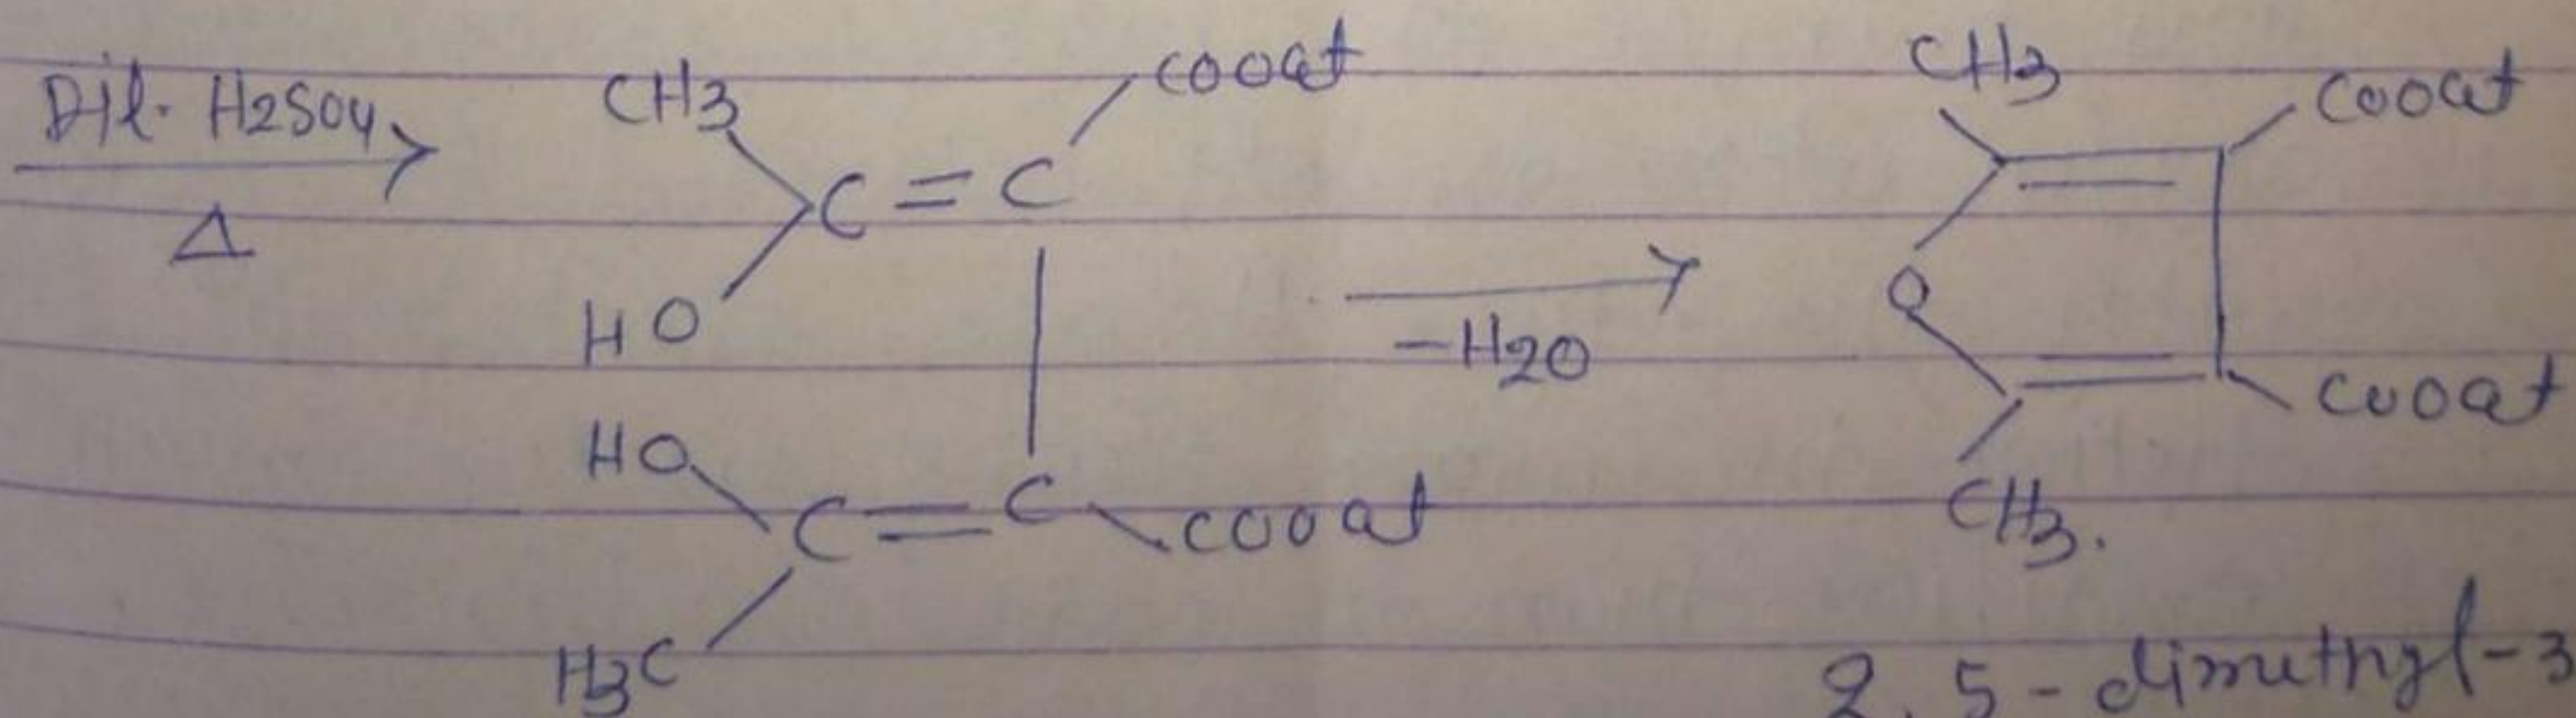 Dil. H2SO4
Δ
CH3
COOEt
C = C
HO
HO
C = C
COOEt
H3C
-H2O
CH3
COOEt
O
COOEt
CH3.
2,5-dimethyl-3